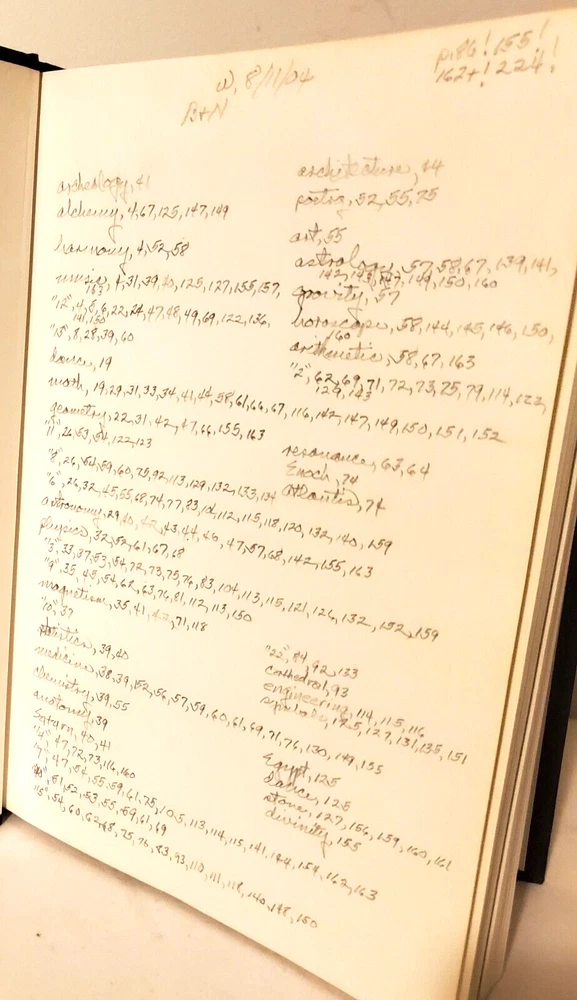 W, 8/11/04
B+N
p.86! 155!
162+! 224!
archeology, 41
alchemy, 4, 67, 125, 147, 149
harmony, 4, 52, 58
music, 4, 31, 39, 40, 125, 127, 155, 157,
163
"12", 4, 5, 6, 22, 24, 47, 48, 49, 69, 122, 136,
141, 150
"13", 8, 28, 39, 60
dance, 19
math, 19, 29, 31, 33, 34, 41, 44, 58, 61, 66, 67, 116, 142, 147, 149, 150, 151, 152
geometry, 22, 31, 42, 47, 66, 155, 163
"11", 26, 53, 54, 122, 123
"8", 26, 54, 59, 60, 75, 92, 113, 129, 132, 133, 134
"6", 26, 32, 45, 55, 68, 74, 77, 83, 104, 112, 115, 118, 120, 132, 140, 159
astronomy, 29, 40, 42, 43, 44, 46, 47, 57, 68, 142, 155, 163
physics, 32, 52, 61, 67, 68
"3", 33, 37, 53, 54, 72, 73, 75, 76, 83, 104, 113, 115, 121, 126, 132, 152, 159
"9", 35, 45, 54, 62, 63, 76, 81, 112, 113, 150
magnetism, 35, 41, 42, 71, 118
"10", 37
39, 40
medicine, 38, 39, 52, 56, 57, 59, 60, 61, 69, 71, 76, 130, 149, 155
chemistry, 39, 55
anatomy, 39
Saturn, 40, 41
"4", 47, 72, 73, 116, 160
"7", 47, 54, 55, 59, 61, 75, 105, 113, 114, 115, 141, 144, 154, 162, 163
51, 52, 53, 55, 59, 61, 69
"5", 54, 60, 62, 68, 75, 76, 83, 93, 110, 111, 118, 140, 148, 150
architecture, 44
poetry, 52, 55, 75
art, 55
astrology, 57, 58, 67, 139, 141,
142, 143, 147, 149, 150, 160
gravity, 57
horoscope, 58, 144, 145, 146, 150,
160
arithmetic, 58, 67, 163
"2", 62, 69, 71, 72, 73, 75, 79, 114, 122,
129, 143
resonance, 63, 64
Enoch, 74
Atlantis, 74
"22", 84, 92, 133
cathedral, 93
engineering, 114, 115, 116
symbols, 125, 127, 131, 135, 151
Egypt, 125
dance, 125
stone, 127, 156, 159, 160, 161
divinity, 155